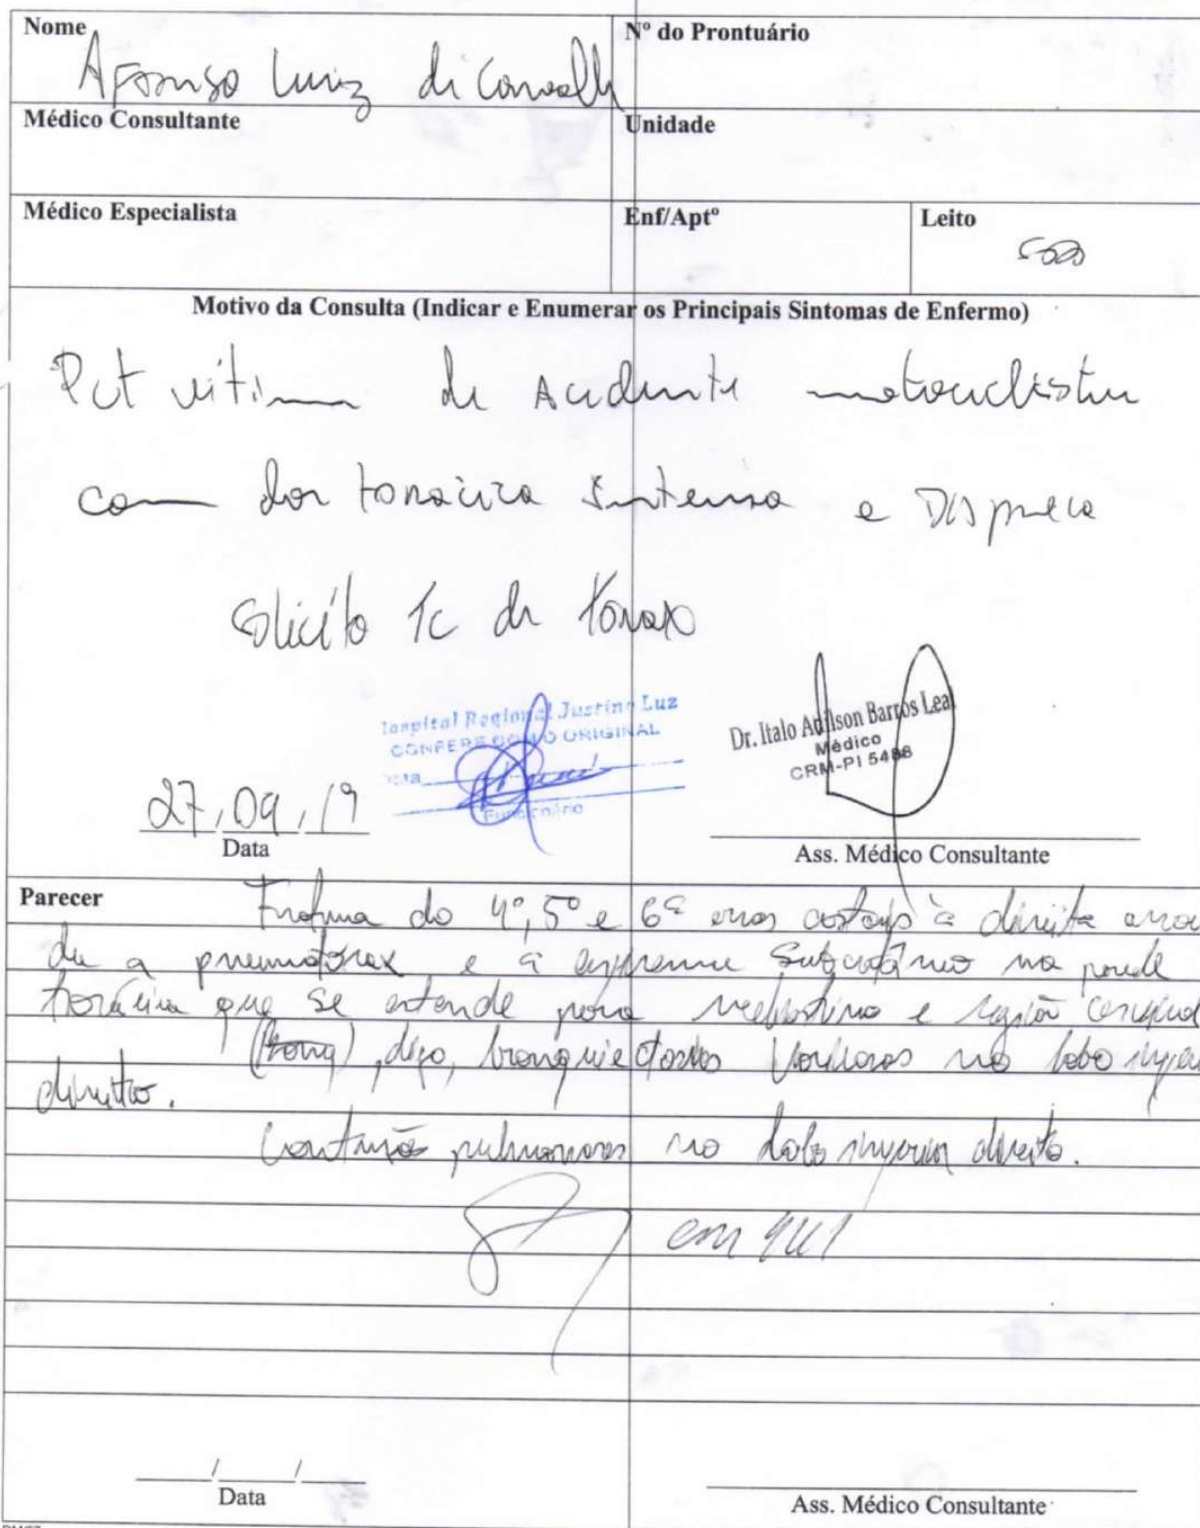 Nome
Nº do Prontuário
Afonso Luiz di Carvalh
Médico Consultante
Unidade
Médico Especialista
Enf/Aptº
Leito
Motivo da Consulta (Indicar e Enumerar os Principais Sintomas de Enfermo)
Pct vitima de Acidente motociclistico
com dor toracica intensa e Dispneia
Solicito Tc de torax
Hospital Regional Justino Luz
CONFERE COM O ORIGINAL
Data
Funcionário
Dr. Italo Adilson Barros Leal
Médico
CRM-PI 5488
27/09/19
Data
Ass. Médico Consultante
Parecer
Fratura do 4º, 5º e 6º arcos costais à direita
de a pneumotórax e a enfisema subcutâneo na parede
torácica que se estende para mediastino e região cervical
digo, bronquiectasias no lobo
direito.
Contusões pulmonares no lobo direito.
em
Data
Ass. Médico Consultante